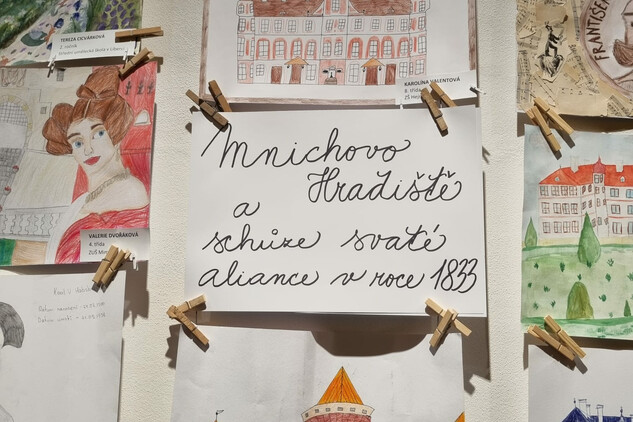 TEREZA CICVÁRKOVÁ
2. ročník
KAROLÍNA VALENTOVÁ
8. třída
ZUŠ
FRANTIŠEK
Mnichovo
Hradiště
a
schůze svaté
aliance v roce 1833
VALERIE DVOŘÁKOVÁ
4. třída
ZUŠ